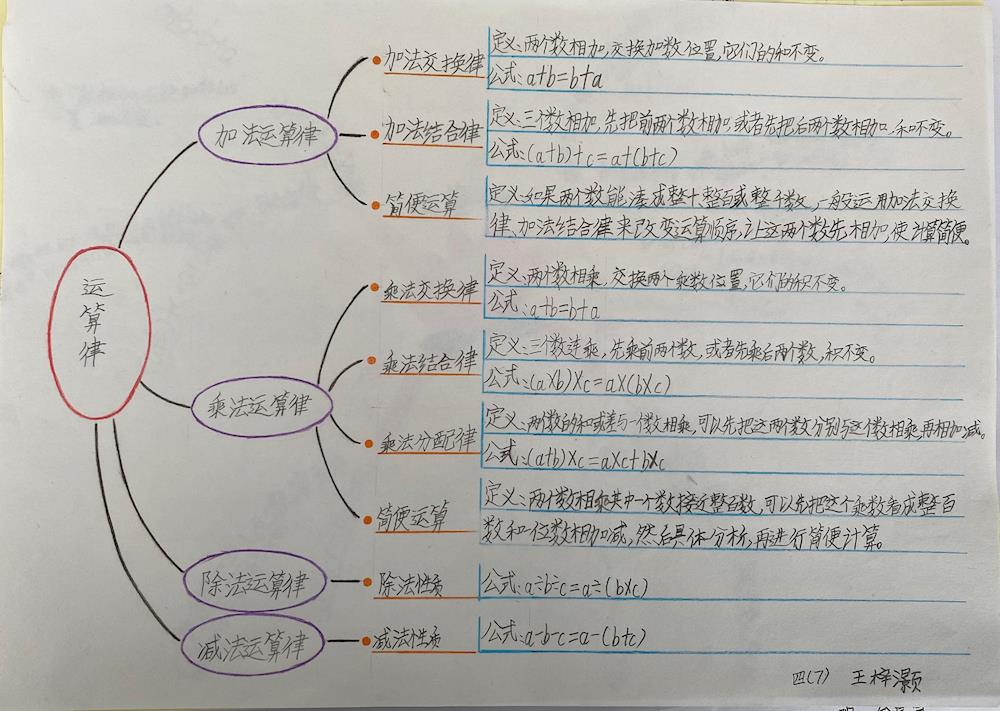 加法交换律
定义:两个数相加,交换加数位置,它们的和不变。
公式:a+b=b+a
加法运算律
加法结合律
定义:三个数相加,先把前两个数相加,或者先把后两个数相加,和不变。
公式:(a+b)+c=a+(b+c)
简便运算
定义:如果两个数能凑成整十整百或整千数,一般运用加法交换
律、加法结合律来改变运算顺序,让这两个数先相加,使计算简便。
运算律
乘法交换律
定义:两个数相乘,交换两个乘数位置,它们的积不变。
公式:a+b=b+a
乘法运算律
乘法结合律
定义:三个数连乘,先乘前两个数,或者先乘后两个数,积不变。
公式:(a×b)×c=a×(b×c)
乘法分配律
定义:两个数的和或差与一个数相乘,可以先把这两个数分别与这个数相乘,再相加减。
公式:(a+b)×c=a×c+b×c
简便运算
定义:两个数相乘其中一个数接近整百数,可以先把这个乘数看成整百
数和一位数相加减,然后具体分析,再进行简便计算。
除法运算律
除法性质
公式:a÷b÷c=a÷(b×c)
减法运算律
减法性质
公式:a-b-c=a-(b+c)
四(7) 王梓灏